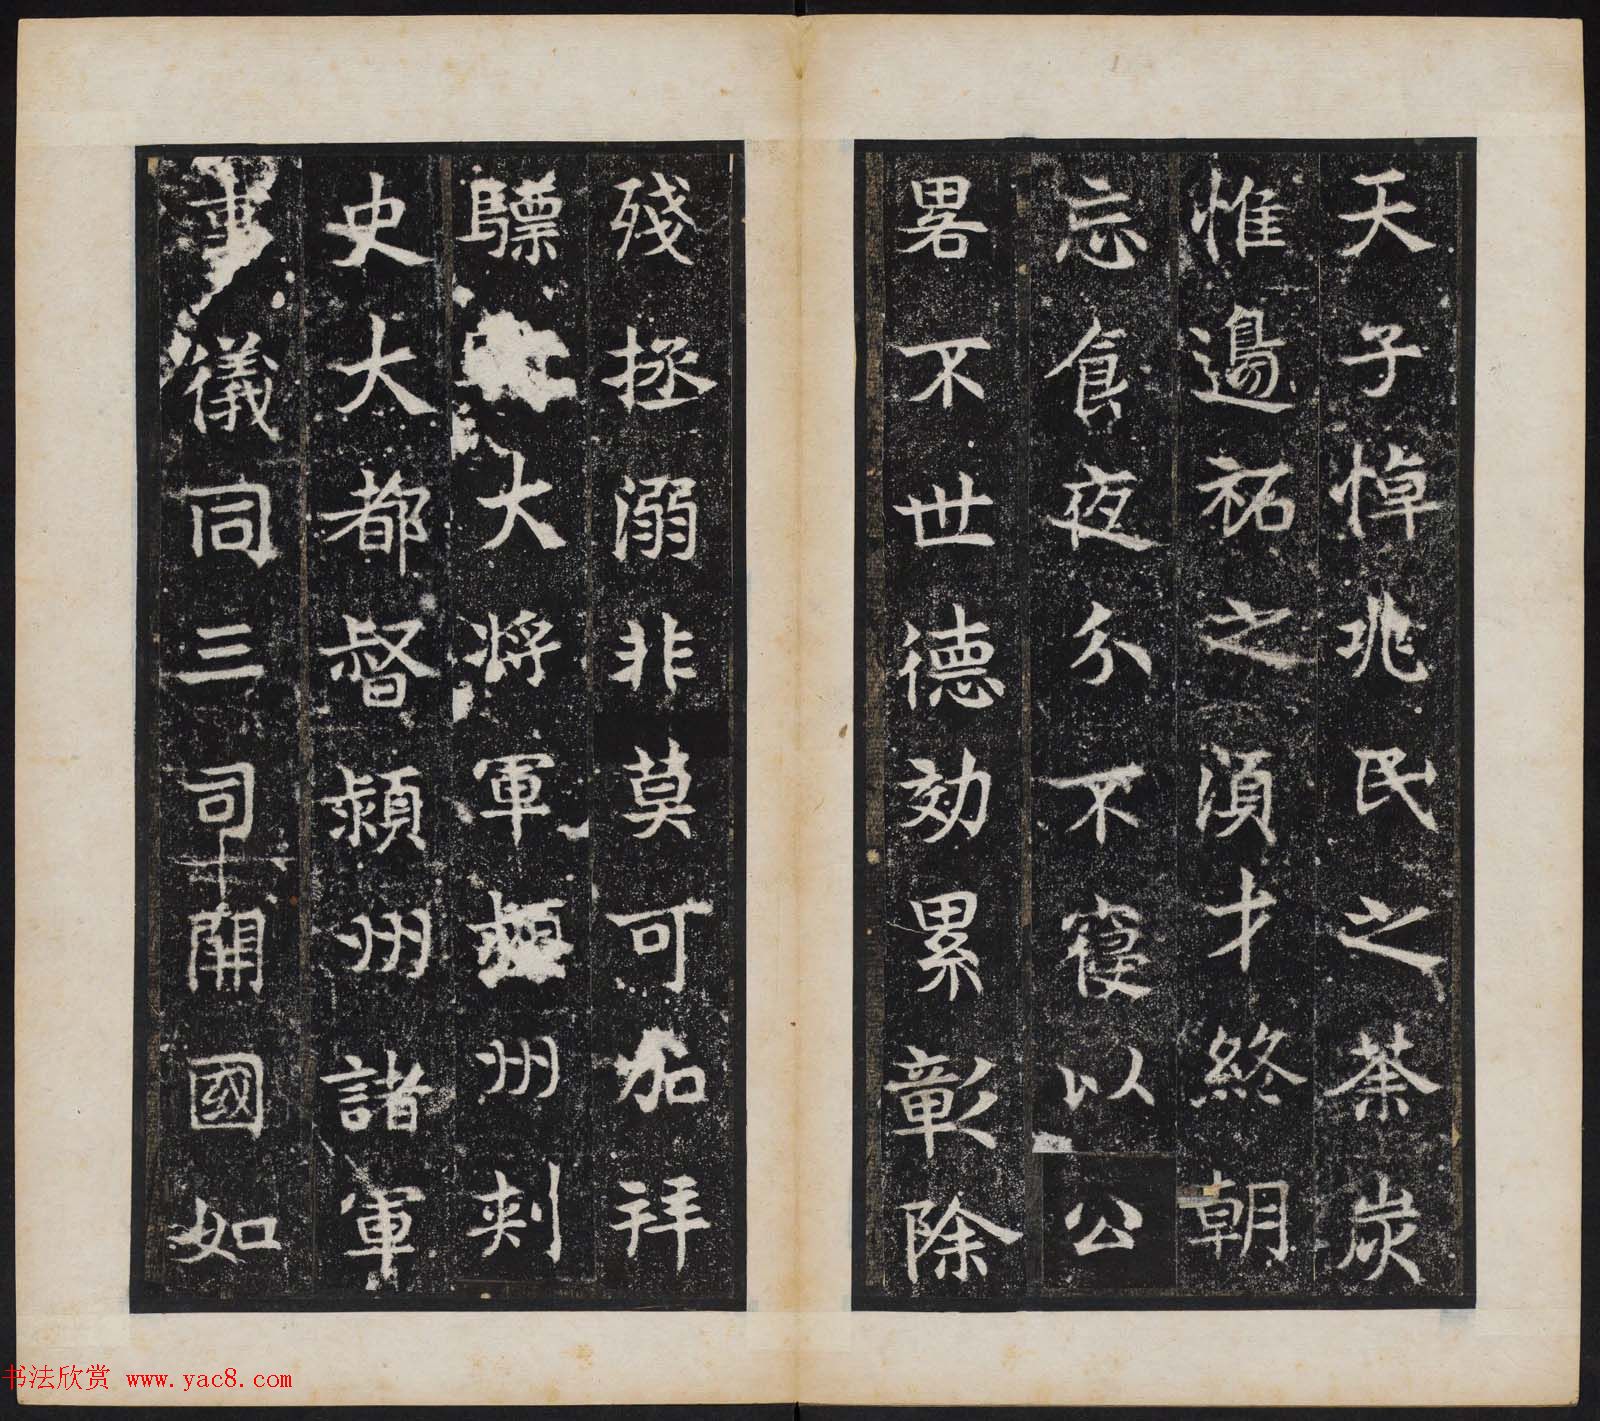 天子悼兆民之荼炭
惟邊祏之湏才終朝
忘食夜分不寑以公
畧不世德効累彰除
殘拯溺非莫可加拜
驃大將軍潁州刺
史大都督潁州諸軍
事儀同三司開國如
书法欣赏 www.yac8.com